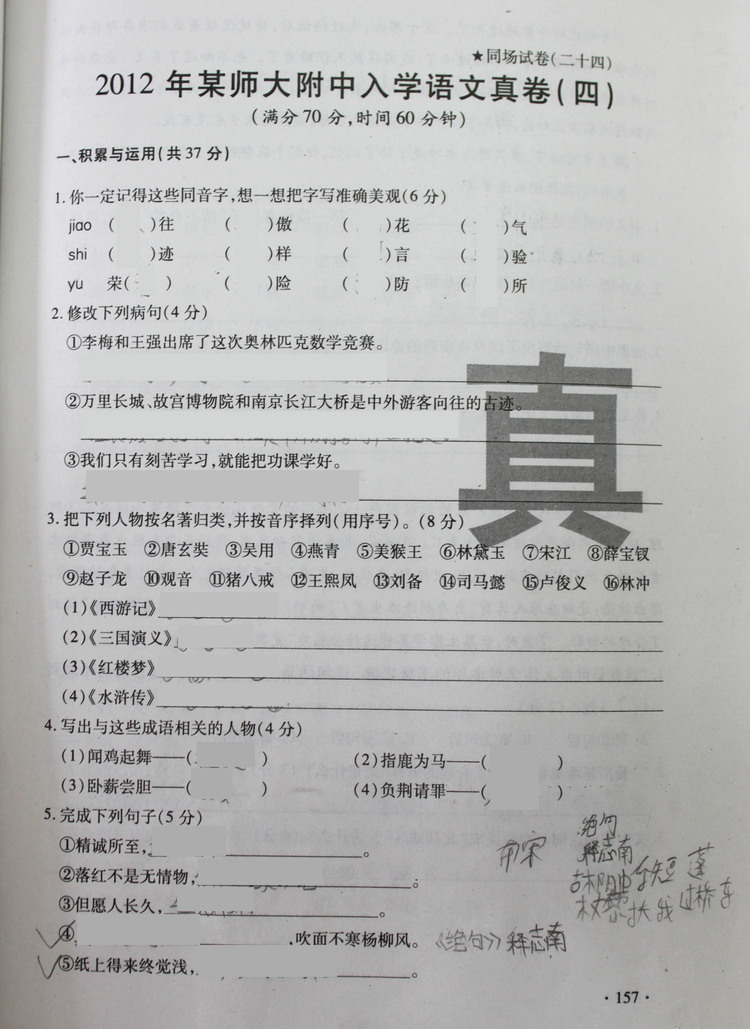 ★同场试卷(二十四)
2012年某师大附中入学语文真卷(四)
(满分70分,时间60分钟)
一、积累与运用(共37分)
1.你一定记得这些同音字,想一想把字写准确美观(6分)
jiao ( )往 ( )傲 ( )花 ( )气
shi ( )迹 ( )样 ( )言 ( )验
yu 荣( ) ( )险 ( )防 ( )所
2.修改下列病句(4分)
①李梅和王强出席了这次奥林匹克数学竞赛。
②万里长城、故宫博物院和南京长江大桥是中外游客向往的古迹。
③我们只有刻苦学习,就能把功课学好。
真
3.把下列人物按名著归类,并按音序择列(用序号)。(8分)
①贾宝玉 ②唐玄奘 ③吴用 ④燕青 ⑤美猴王 ⑥林黛玉 ⑦宋江 ⑧薛宝钗
⑨赵子龙 ⑩观音 ⑪猪八戒 ⑫王熙凤 ⑬刘备 ⑭司马懿 ⑮卢俊义 ⑯林冲
(1)《西游记》
(2)《三国演义》
(3)《红楼梦》
(4)《水浒传》
4.写出与这些成语相关的人物(4分)
(1)闻鸡起舞——( ) (2)指鹿为马——( )
(3)卧薪尝胆——( ) (4)负荆请罪——( )
5.完成下列句子(5分)
①精诚所至, 。
②落红不是无情物, 。
③但愿人长久, 。
④ ,吹面不寒杨柳风。《绝句》释志南
⑤纸上得来终觉浅, 。
南宋
绝句
释志南
古木阴中系短蓬
杖藜扶我过桥东
·157·